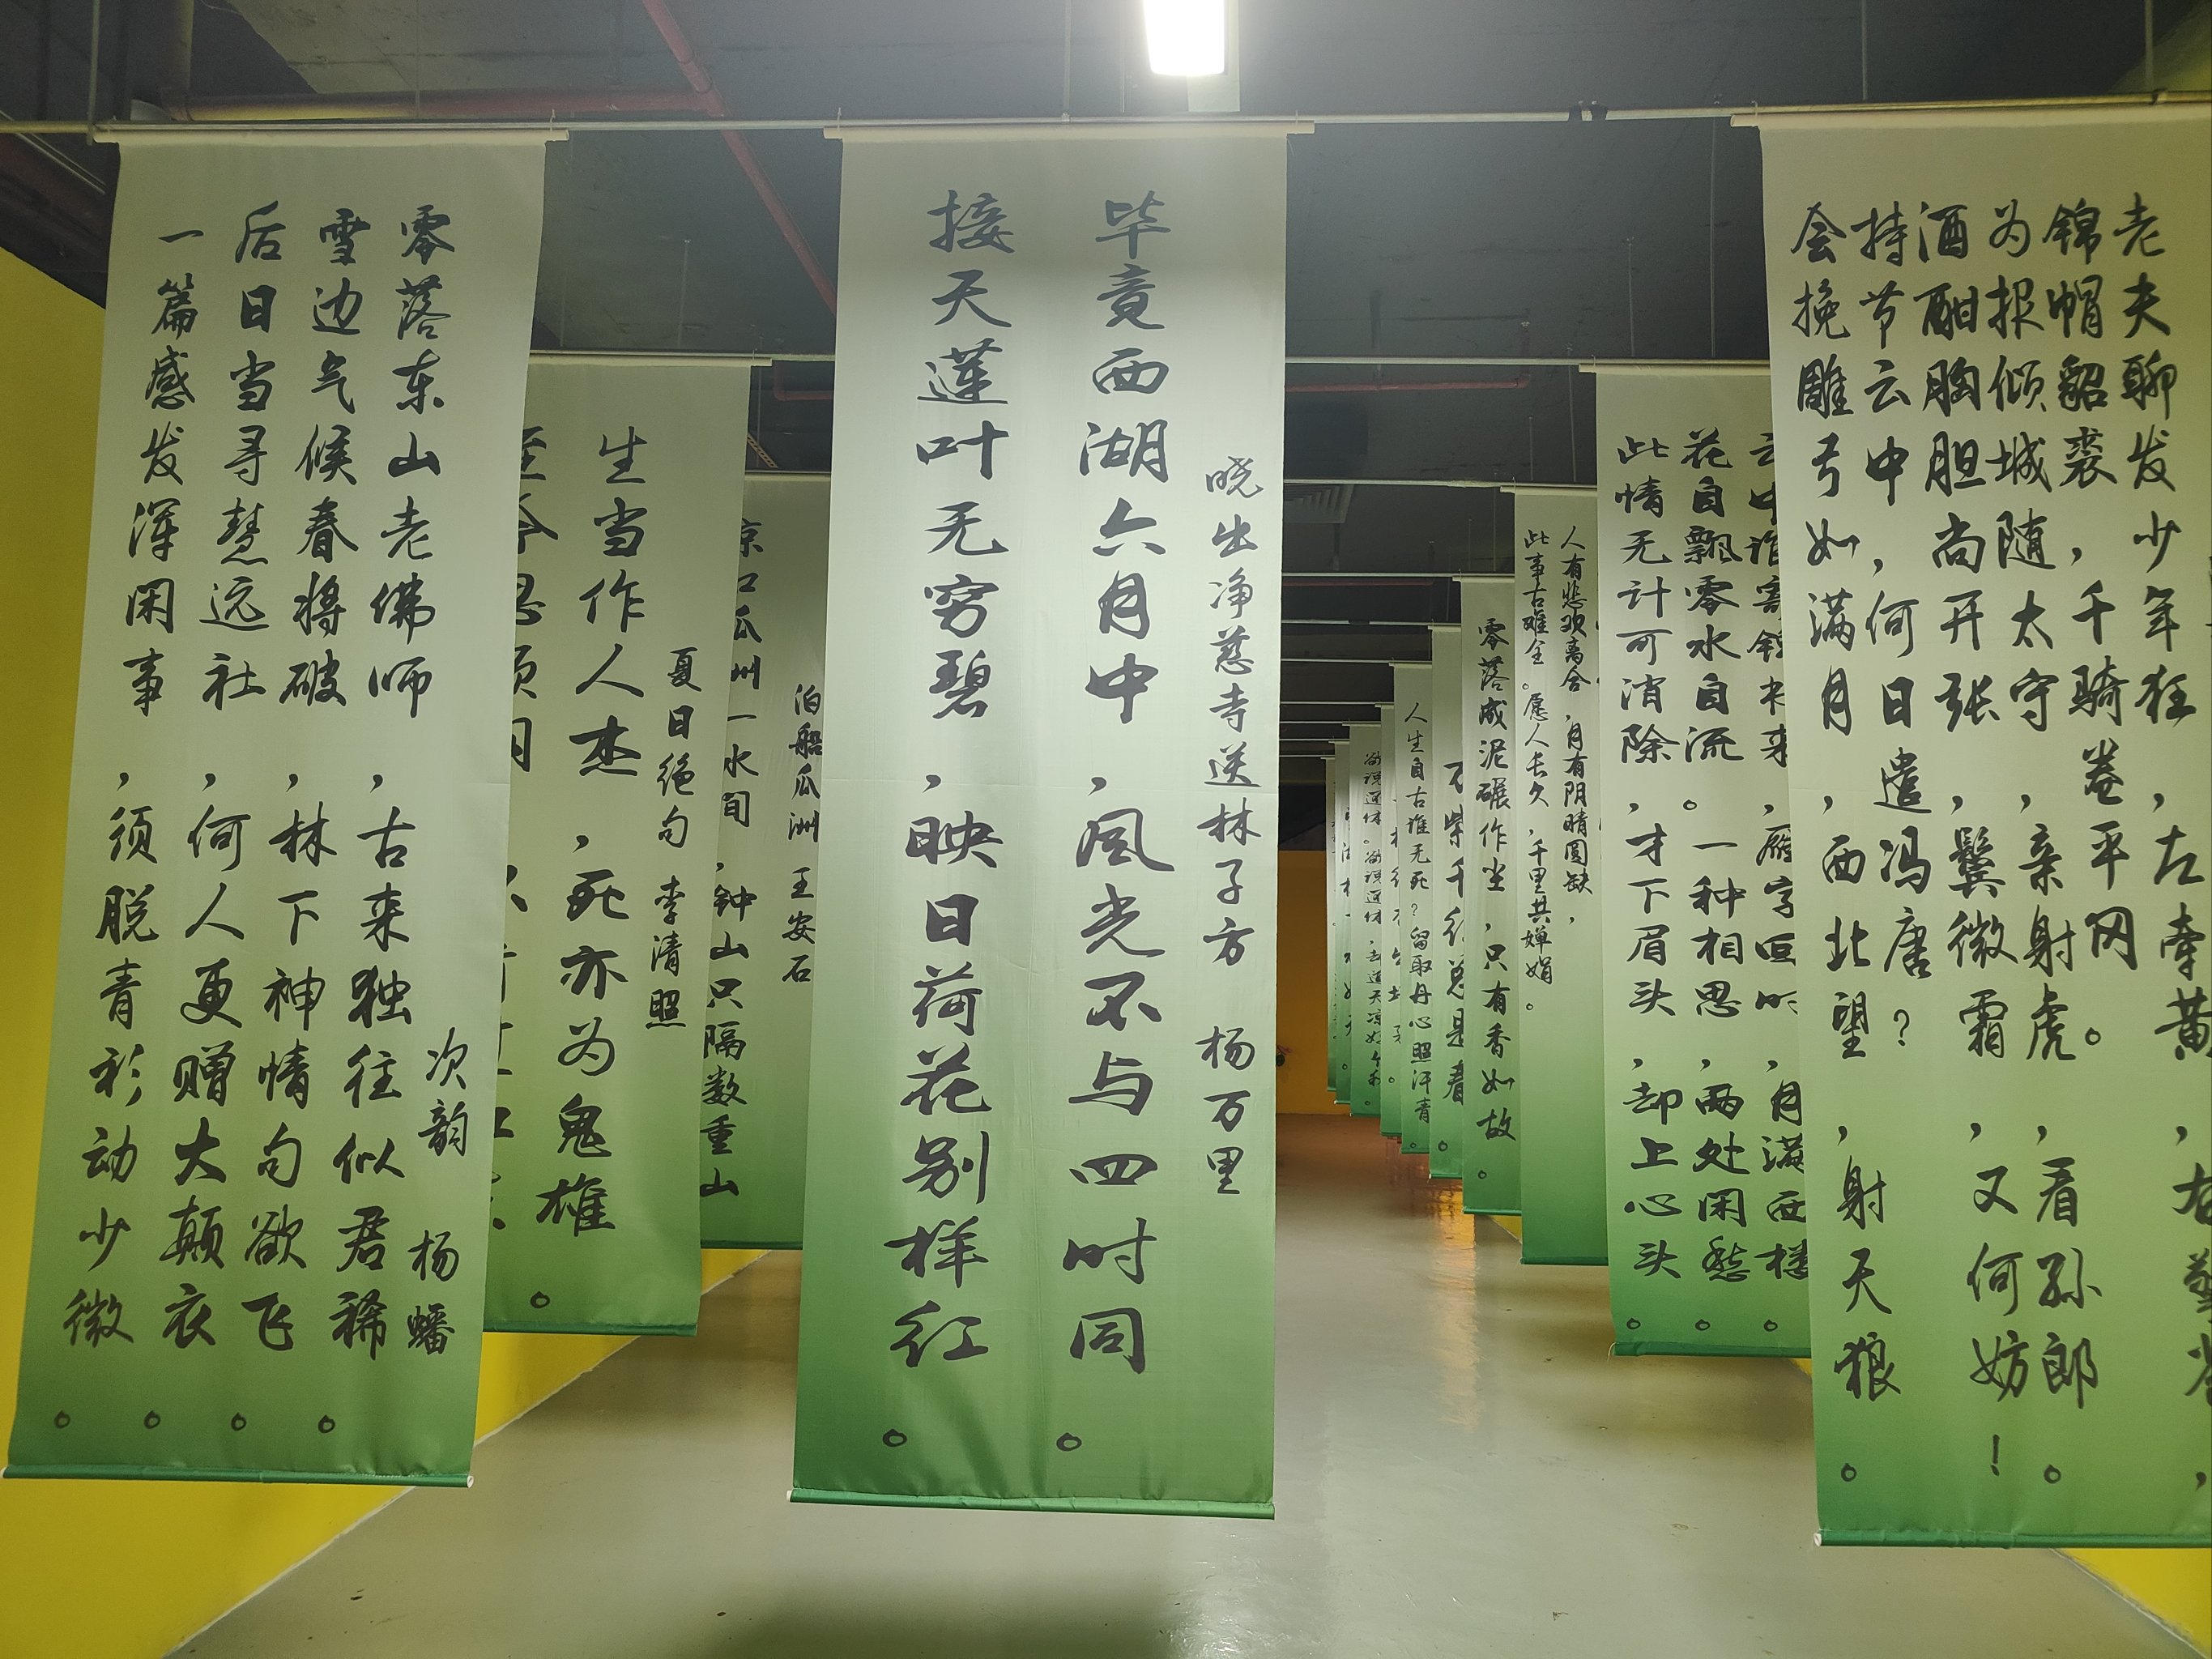 次韵 杨蟠
零落东山老佛师，古来独往似君稀。
雪边气候春将破，林下神情句欲飞。
后日当寻慧远社，何人更赠大颠衣。
一篇感发浑闲事，须脱青衫动少微。
夏日绝句 李清照
生当作人杰，死亦为鬼雄
泊船瓜洲 王安石
京口瓜州一水间，钟山只隔数重山
晓出净慈寺送林子方 杨万里
毕竟西湖六月中，风光不与四时同。
接天莲叶无穷碧，映日荷花别样红。
人生自古谁无死？留取丹心照汗青。
零落成泥碾作尘，只有香如故。
人有悲欢离合，月有阴晴圆缺，
此事古难全。愿人长久，千里共婵娟。
云中谁寄锦书来，雁字回时，月满西楼。
花自飘零水自流。一种相思，两处闲愁。
此情无计可消除，才下眉头，却上心头。
老夫聊发少年狂，左牵黄，右擎苍，
锦帽貂裘，千骑卷平冈。
为报倾城随太守，亲射虎，看孙郎。
酒酣胸胆尚开张，鬓微霜，又何妨！
持节云中，何日遣冯唐？
会挽雕弓如满月，西北望，射天狼。